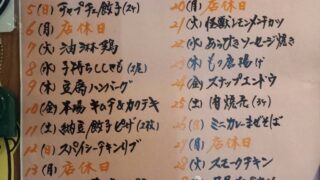 5(日) チャプチェ餃子(2ケ)
6(月) 店休日
7(火) 油淋鶏
8(水) 子持ちししゃも(2尾)
9(木) 豆腐ハンバーグ
10(金) 本場 キムチ&カクテキ
11(土) 納豆餃子ピザ(2枚)
12(日) スパイシーチキンリブ
13(月) 店休日
20(月) 店休日
21(火) 怪獣レモンメンチカツ
22(水) あらびきソーセージ焼き
23(木) もつ唐揚げ
24(金) スナップエンドウ
25(土) 肉焼売(3ケ)
26(日) ミニカレーまぜそば
27(月) 店休日
28(火) スモークチキン